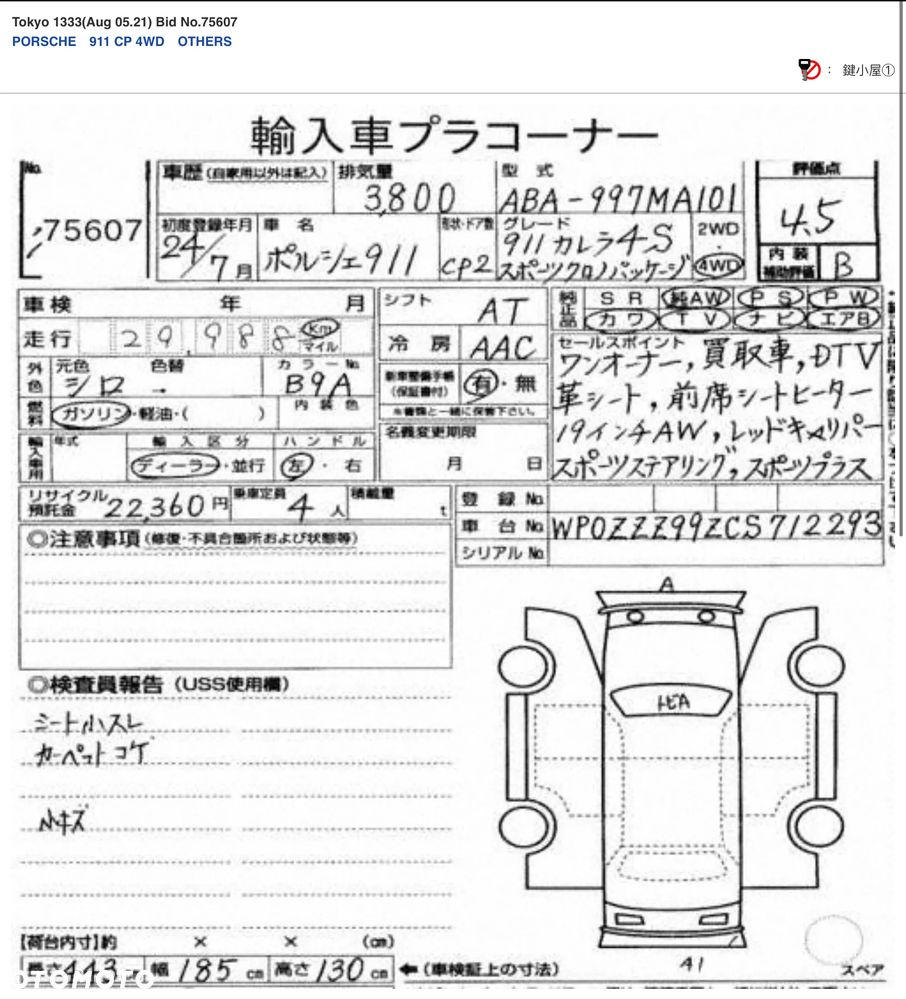 Tokyo 1333(Aug 05.21) Bid No.75607
PORSCHE 911 CP 4WD OTHERS
： 鍵小屋①
輸入車プラコーナー
No. 75607
車歴 (自家用以外は記入)
排気量 3,800
型式 ABA-997MA101
評価点 4.5
初度登録年月 24/7月
車名 ポルシェ911
形状・ドア数 CP2
グレード 911カレラ4S
スポーツクロノパッケージ
2WD・4WD
内装補助評価 B
車検 年 月
シフト AT
純正品 SR 純AW PS PW
カワ TV ナビ エアB
走行 29,988 Km マイル
冷房 AAC
セールスポイント
ワンオーナー,買取車,DTV
革シート,前席シートヒーター
19インチAW,レッドキャリパー
スポーツステアリング,スポーツプラス
外色 元色 シロ 色替 → カラーNo. B9A
新車整備手帳(保証書付) 有・無
※書類と一緒に保管下さい。
燃料 ガソリン・軽油・( ) 内装色
名義変更期限 月 日
輸入車用 年式 輸入区分 ディーラー・並行 ハンドル 左・右
リサイクル預託金 22,360円 乗車定員 4人 積載量 t
登録No.
車台No. WP0ZZZ99ZCS712293
シリアルNo.
◎注意事項(修復・不具合箇所および状態等)
A
◎検査員報告(USS使用欄)
トビA
シート小スレ
カーペットコゲ
小キズ
【荷台内寸】約 × × (cm)
長さ443cm 幅185cm 高さ130cm
←(車検証上の寸法)
A1
スペア
OTOMOTO